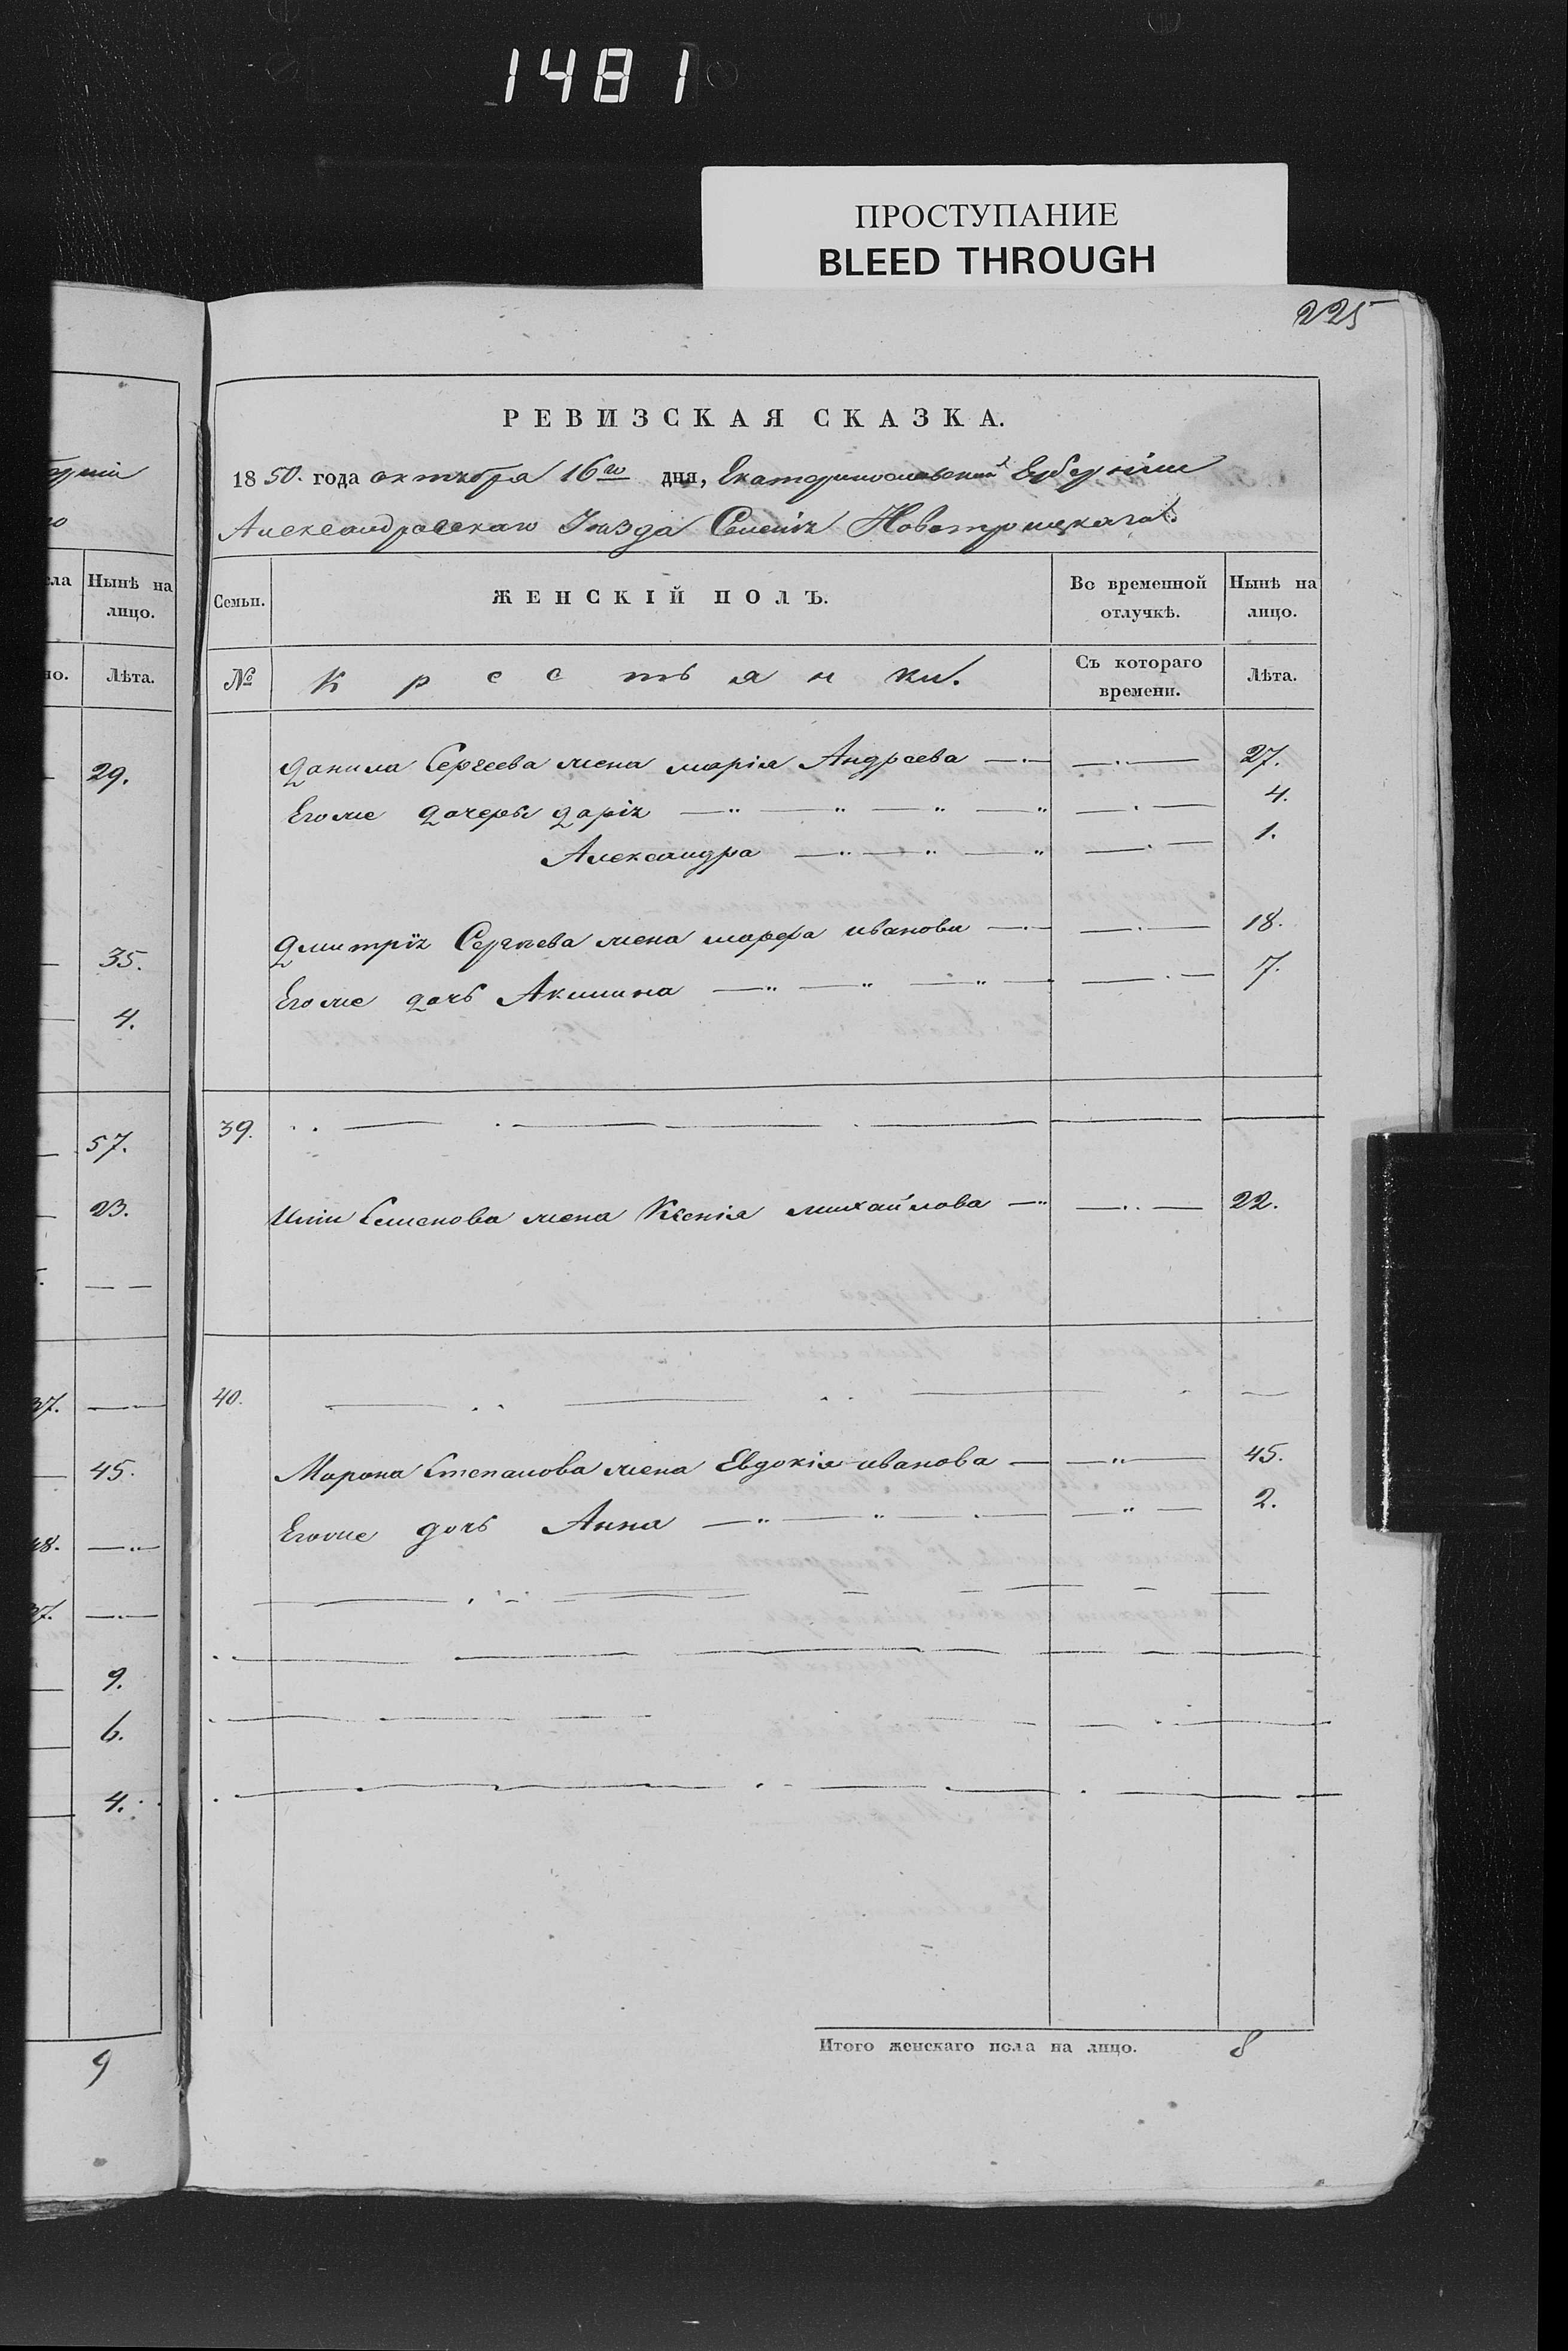 1481
ПРОСТУПАНИЕ
BLEED THROUGH
225
РЕВИЗСКАЯ СКАЗКА.
1850. года октября 16го дня, Екатеринославской Губерніи
Александровскаго Уѣзда Селенія Новотроицкаго.
Семьи.
ЖЕНСКІЙ ПОЛЪ.
Во временной отлучкѣ.
Нынѣ на лицо.
№
Крестьянки.
Съ котораго времени.
Лѣта.
Данила Сергеева жена марія Андреева 27.
Егоже дочеры Дарія 4.
Александра 1.
Дмитрія Сергѣева жена марфа иванова 18.
Егоже дочь Акилина 7.
39.
Семенова жена Ксенія михайлова 22.
40.
Мирона Степанова жена Евдокія иванова 45.
Егоже дочь Анна 2.
Итого женскаго пола на лицо. 8
Нынѣ на лицо.
Лѣта.
29.
35.
4.
57.
23.
37.
45.
48.
37.
9.
6.
4.
9